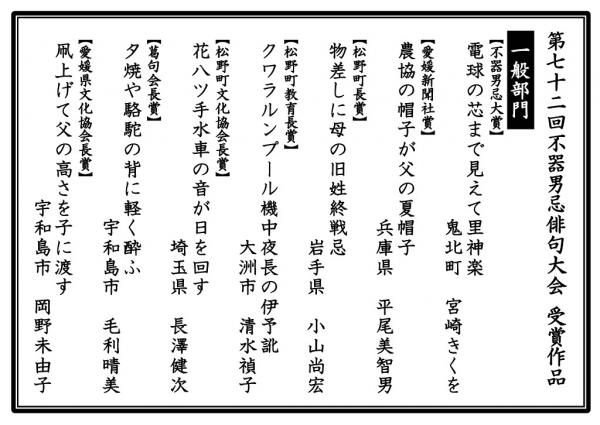 第七十二回不器男忌俳句大会 受賞作品
一般部門
【不器男忌大賞】
電球の芯まで見えて里神楽
鬼北町 宮崎きくを
【愛媛新聞社賞】
農協の帽子が父の夏帽子
兵庫県 平尾美智男
【松野町長賞】
物差しに母の旧姓終戦忌
岩手県 小山尚宏
【松野町教育長賞】
クワラルンプール機中夜長の伊予訛
大洲市 清水禎子
【松野町文化協会長賞】
花八ツ手水車の音が日を回す
埼玉県 長澤健次
【葛句会長賞】
夕焼や駱駝の背に軽く酔ふ
宇和島市 毛利晴美
【愛媛県文化協会長賞】
凧上げて父の高さを子に渡す
宇和島市 岡野未由子